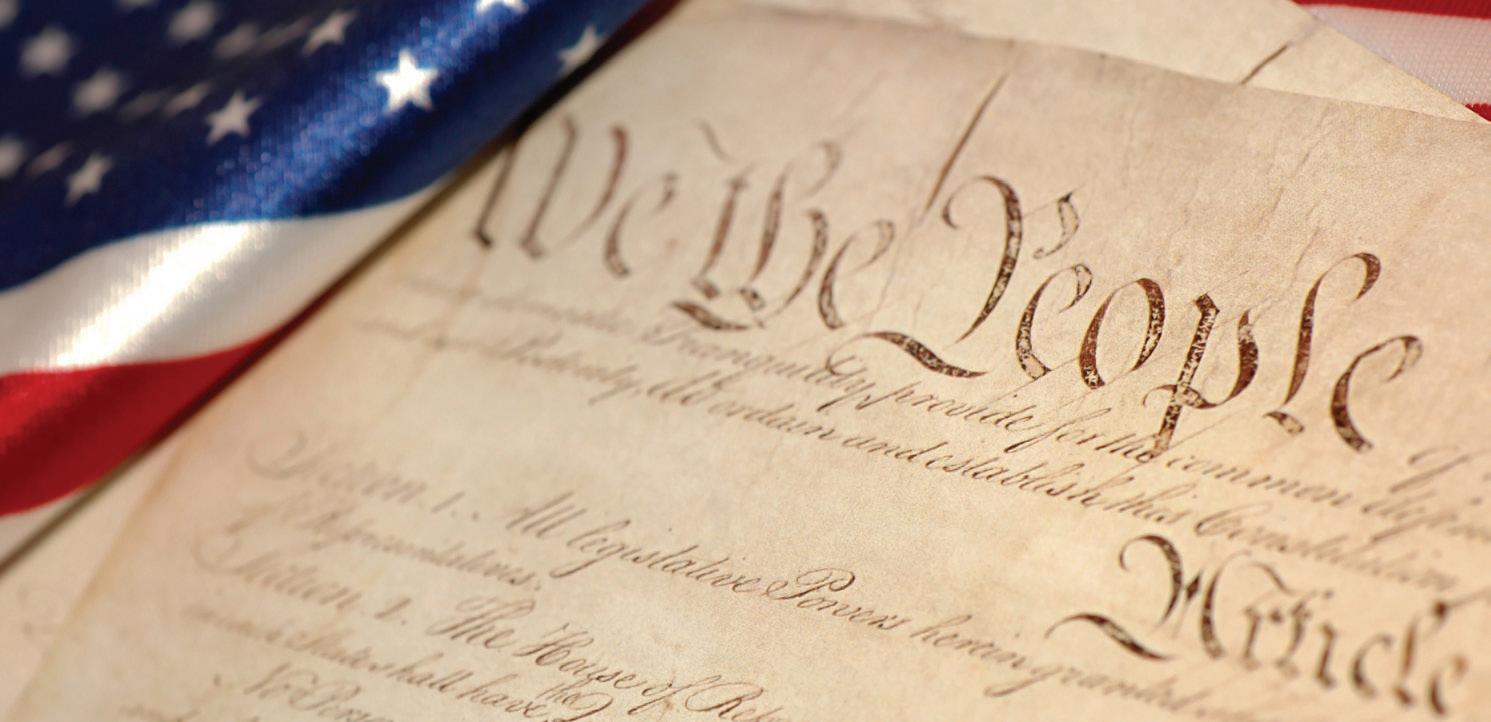 We the People
Tranquility, provide for the common
Posterity, do ordain and establish this Constitution
Article
Section. 1. All legislative Powers herein granted
Representatives.
Section. 2. The House of
State shall have the
No Person